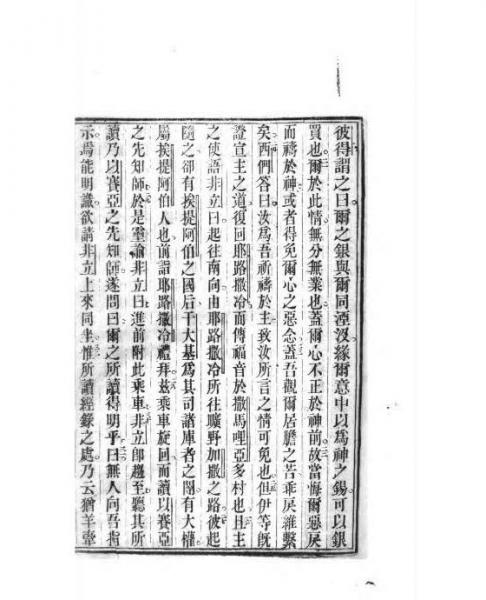 彼得謂之曰爾之銀與爾同湮沒緣爾意中以為神之錫可以銀
買也爾於此情無分無業也蓋爾心不正於神前故當悔爾惡戾
而禱於神或者得免爾心之惡念蓋吾觀爾居膽之苦乖戾維繫
矣西們答曰汝為吾祈禱於主致汝所言之情可免也但伊等既
證宣主之道復回耶路撒冷而傳福音於撒馬哩亞多村也且主
之使語非立曰起往南向由耶路撒冷所往曠野加撒之路彼起
隨之卻有挨提阿伯之國后干大基為其司諸庫者之閹有大權
屬挨提阿伯人也前詣耶路撒冷禮拜茲乘車旋回而讀以賽亞
之先知師於是靈諭非立曰進前附此乘車非立即趨至聽其所
讀乃以賽亞之先知師遂問曰爾之所讀得明乎曰無人向吾指
示焉能明識欲請非立上來同坐惟所讀經錄之處乃云猶羊牽